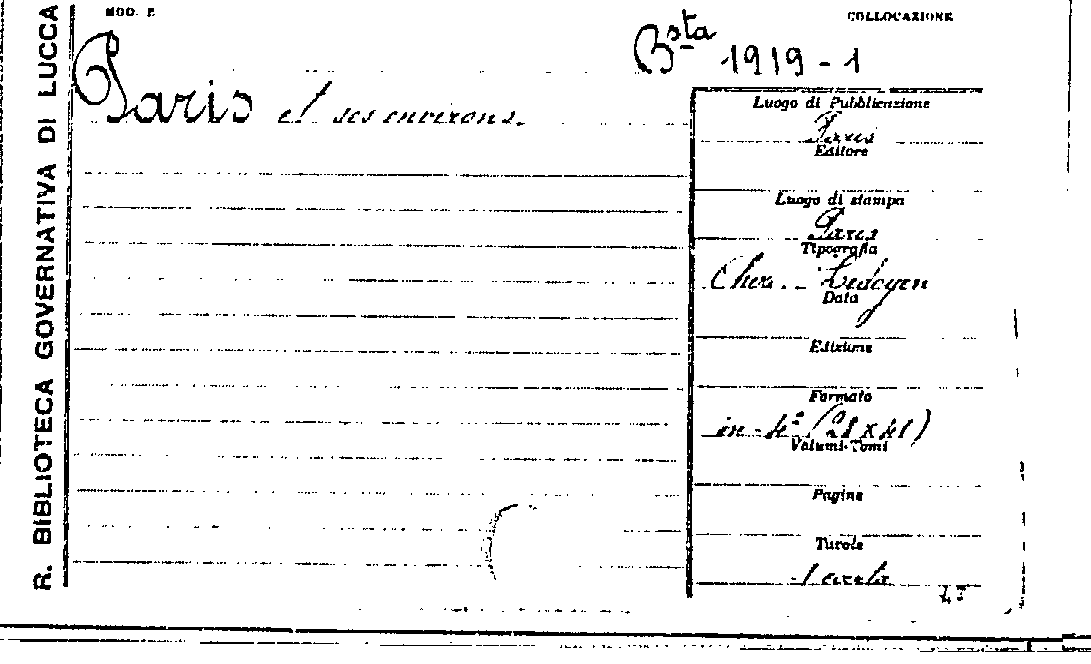 MOD. F.
COLLOCAZIONE
R. BIBLIOTECA GOVERNATIVA DI LUCCA
Bsta 1919-1
Paris et ses environs.
Luogo di Pubblicazione
Paris
Editore
Luogo di stampa
Paris
Tipografia
Chez. Ledoyen
Data
Edizione
Formato
in-4º (28x41)
Volumi-Tomi
Pagine
Tavole
1 carta